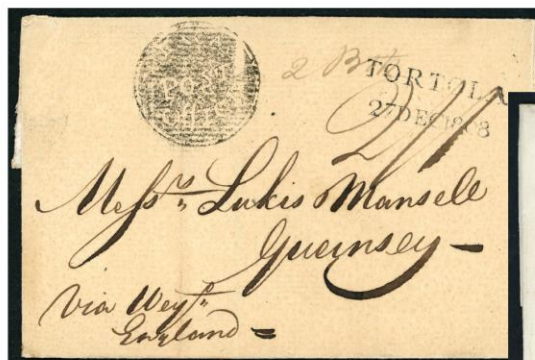 POST
OFFICE
TORTOLA
27 DEC 1808
2/1
Mess.rs Lukis Mansell
Guernsey
Via Wey.th
England